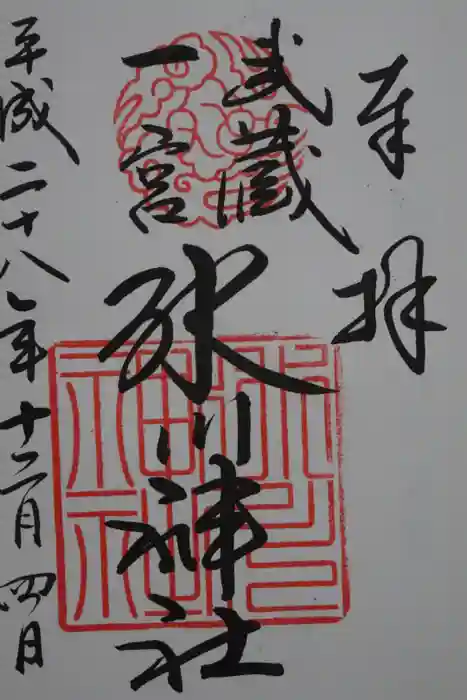 奉拝
武蔵
一宮
氷川神社
平成二十八年十二月四日
氷川神社